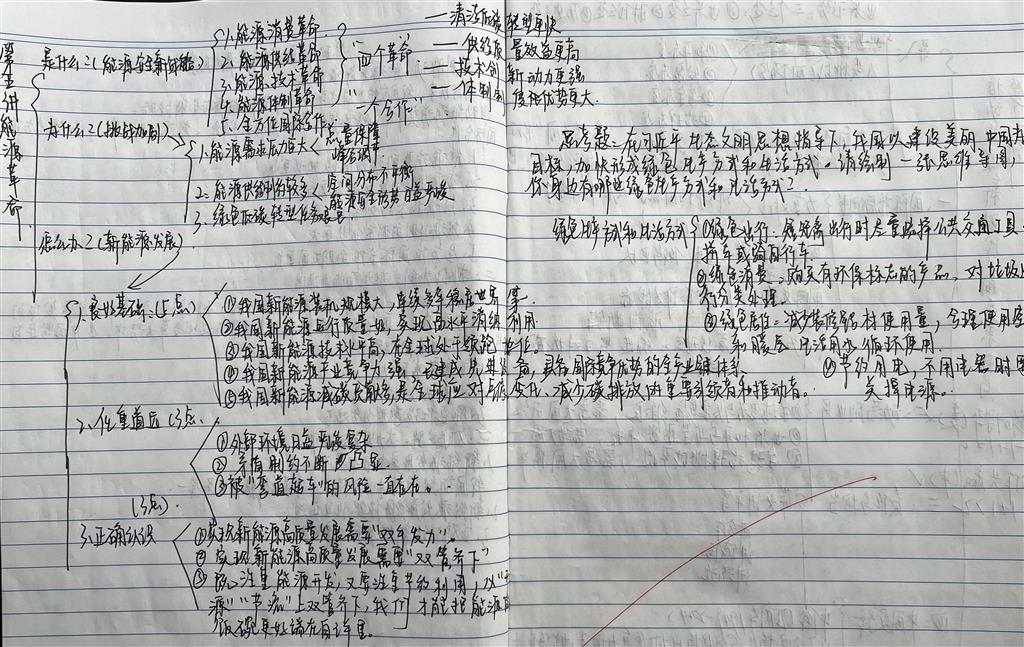 是什么？(能源安全新战略)
1.能源消费革命
2.能源供给革命
3.能源技术革命
4.能源体制革命
5.全方位国际合作
"四个革命"
"一个合作"
一清洁低碳 转型更快
一供给质 量效益更高
一技术创 新动力更强
一体制 度 优势更大.
为什么？(挑战加剧)
1.能源需求压力巨大
总量保障
峰谷调节
2.能源供给制约较多
空间分布不平衡
能源安全形势日益严峻
3.绿色低碳转型任务艰
怎么办？(新能源发展)
1.良好基础:(5点)
①我国新能源装机规模大,连续多年稳居世界第
②我国新能源运行质量好,实现高水平消纳 利用
③我国新能源技术水平高,在全球处于领跑 地位。
④我国新能源产业竞争力强,已建成先进 备,具有国际竞争优势的全产业链体系
⑤我国新能源减碳贡献多,是全球应对气候 变化、减少碳排放的重要引领者和推动者。
2、任重道远(3点、
①外部环境日益严峻复杂
② 制约不断 凸显.
③被"弯道超车"的风险一直存在。
(3点)
3.正确认识
①实现新能源高质量发展需要"双 发力"。
② 实现新能源高质量发展需要"双管齐下"
③ 既注重能源开发,又要注重节约利用,从"
源""节流"上双管齐下,我们才能把能源的
饭碗更好端在自己手里。
思考题:在习近平生态文明思想指导下,我国以建设美丽中国为
目标,加快形成绿色生产方式和生活方式。请绘制一张思维导图,
你身边有哪些绿色生产方式和生活方式?
绿色生产方式和生活方式
①绿色出行:短距离出行时尽量选择公共交通工具
拼车或骑自行车.
②绿色消费:购买有环保标志的产品,对垃圾
行分类处理.
③绿色居住:减少装修耗材使用量,合理使用空
和暖气 生活用水循环使用.
④节约用电,不用电器时要
关掉电源。